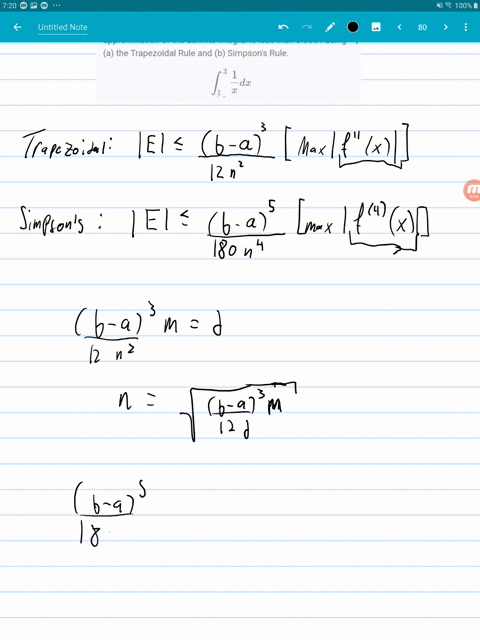 7:20 100%
Untitled Note 80
(a) the Trapezoidal Rule and (b) Simpson's Rule.
∫_1^3 1/x dx
Trapezoidal: |E| ≤ (b-a)^3 / 12 n^2 [Max |f''(x)|]
Simpson's: |E| ≤ (b-a)^5 / 180 n^4 [max |f^(4)(x)|]
(b-a)^3 / 12 n^2 m = d
n = √((b-a)^3 m / 12 d)
(b-a)^5 / 18